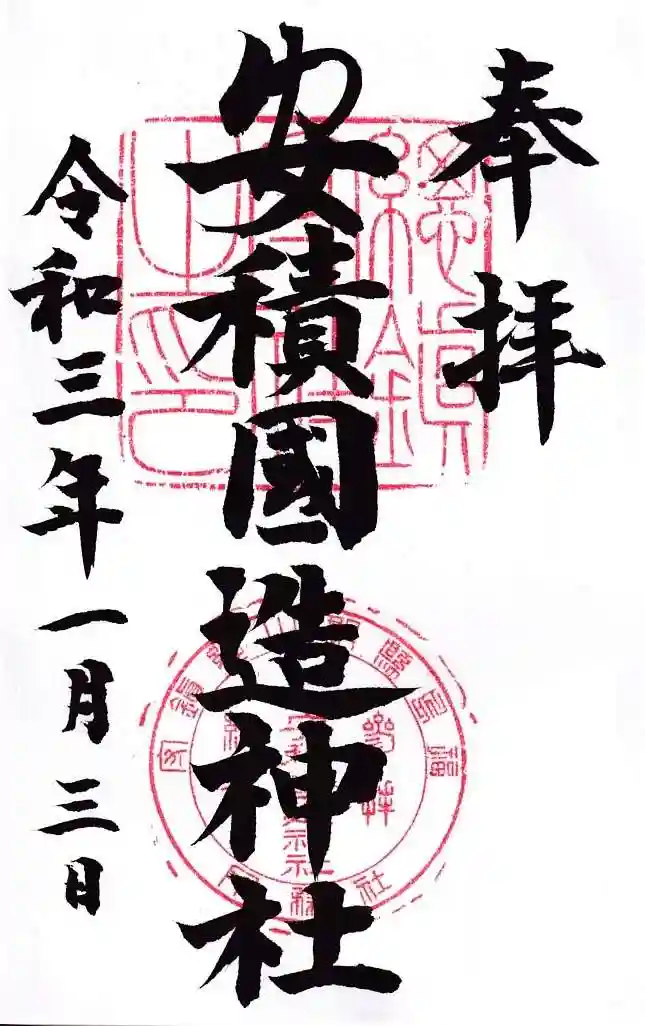 奉拝
安積國造神社
令和三年一月三日